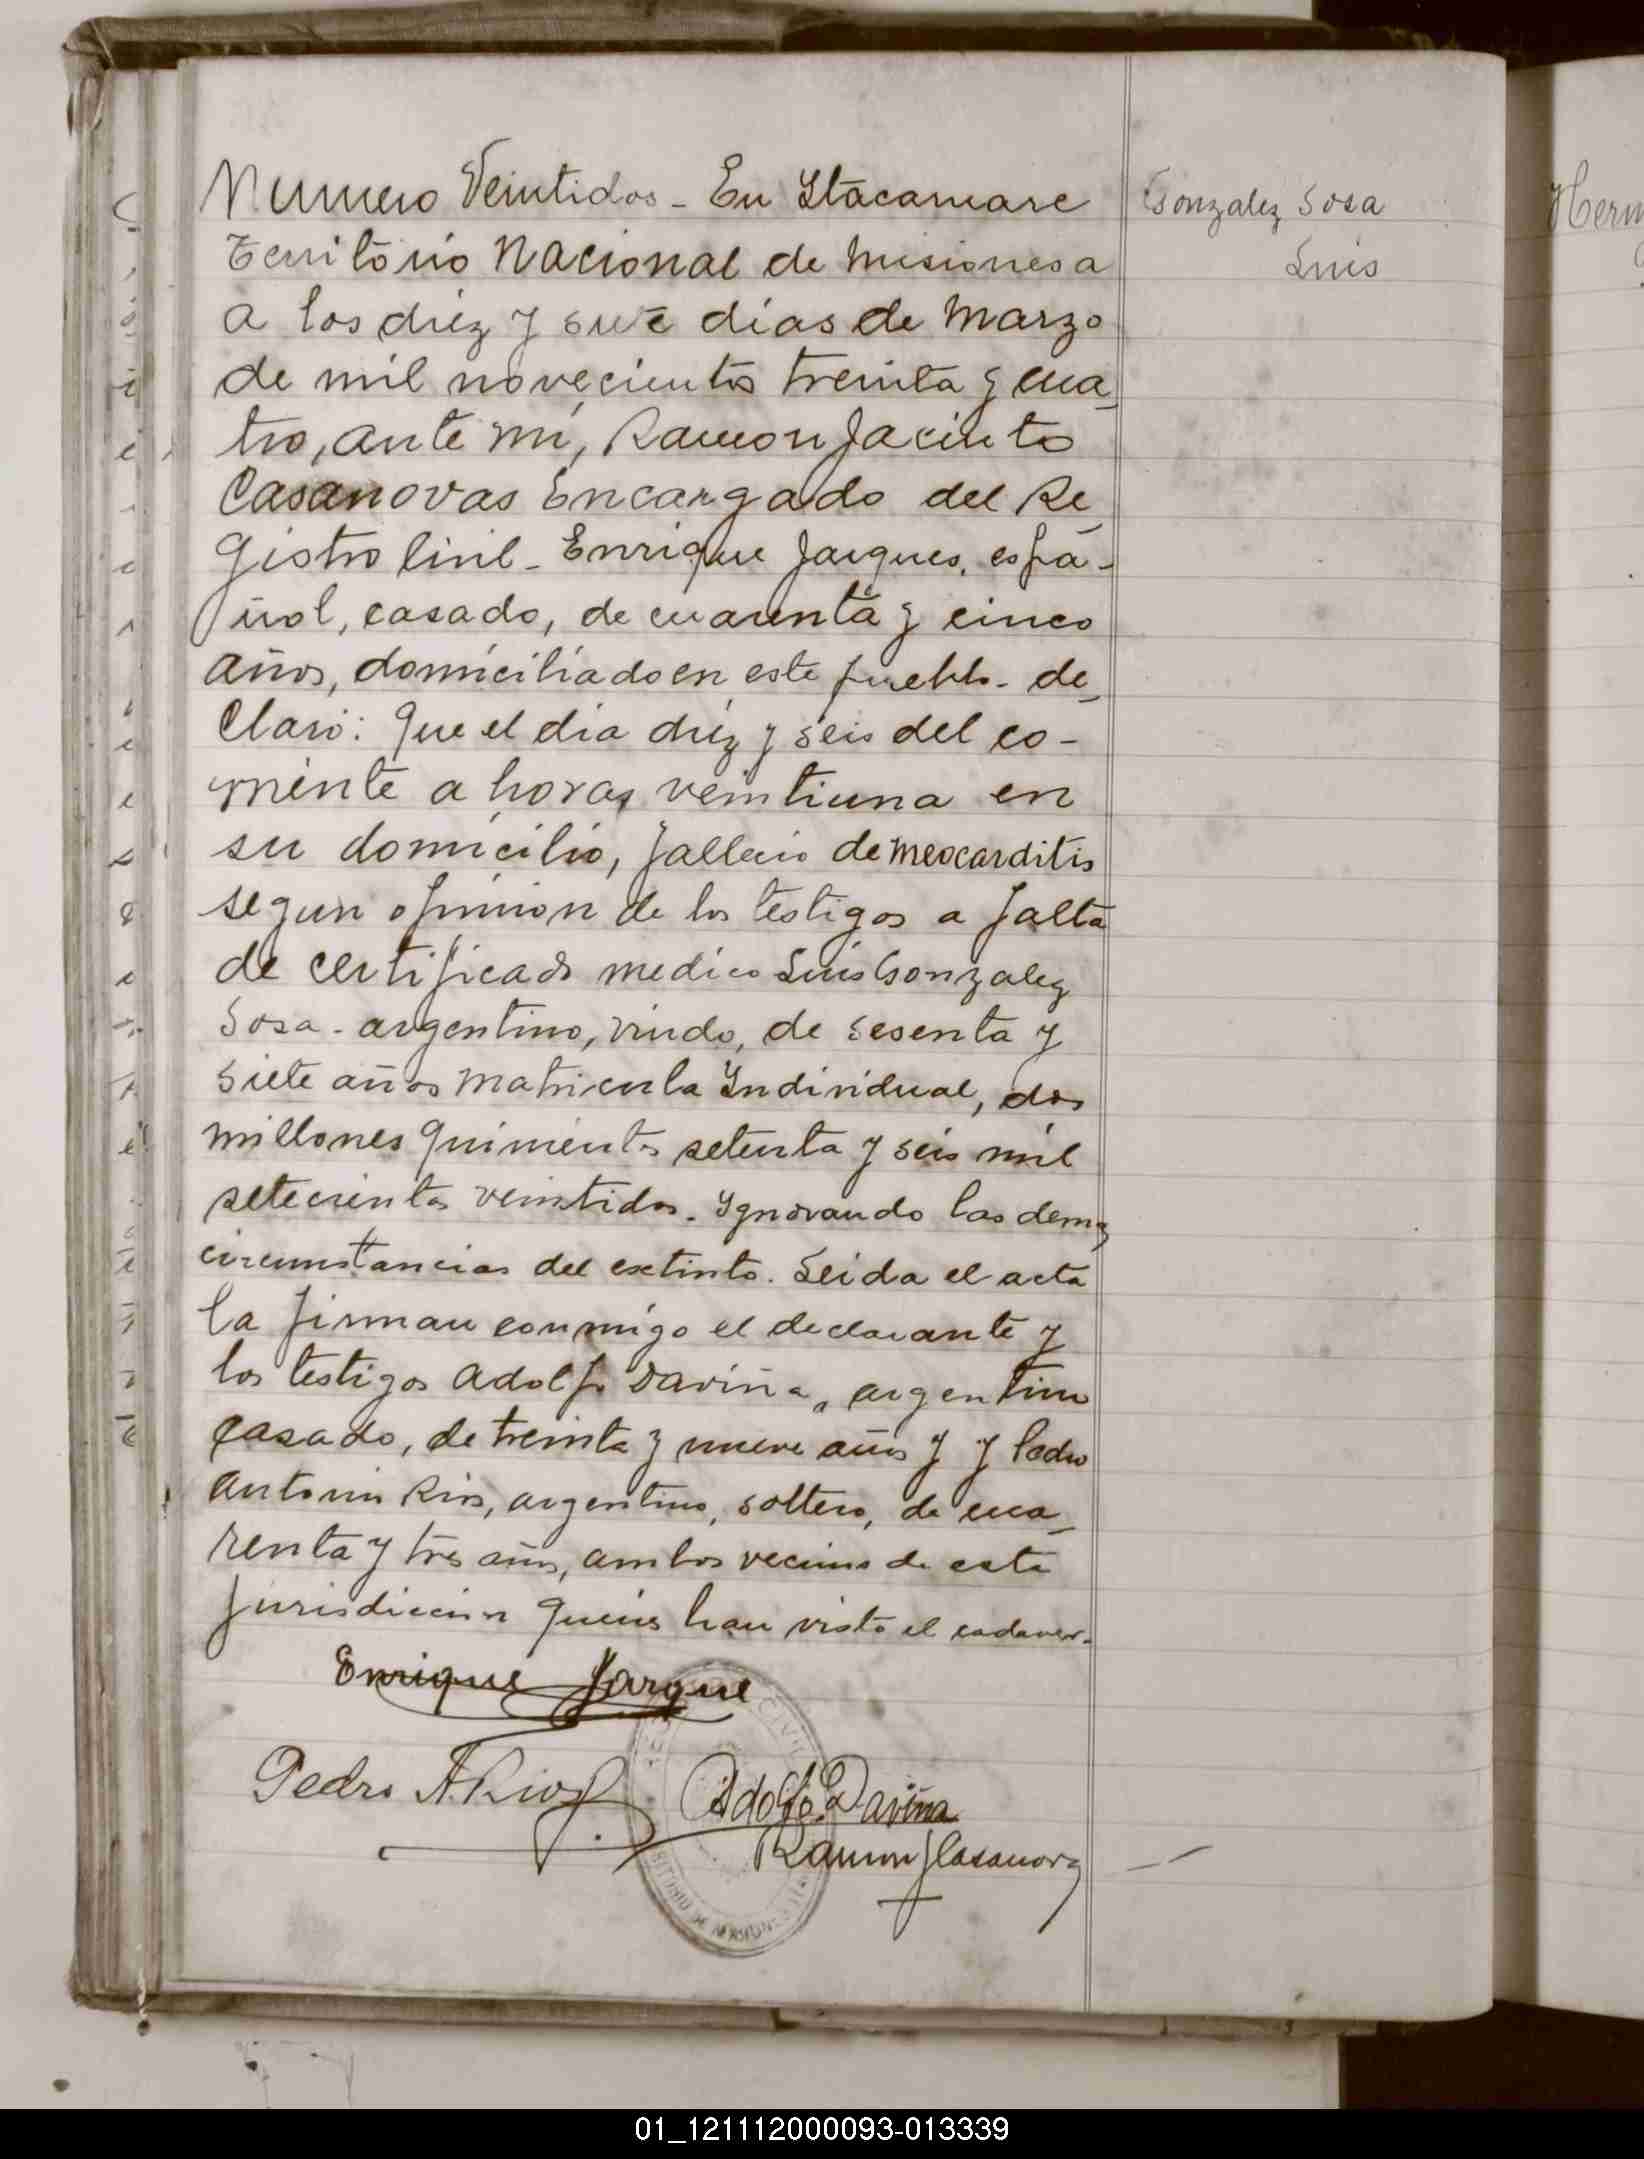 Numero Veintidos - En Ytacaruare
Territorio Nacional de Misiones a
a los diez y siete días de Marzo
de mil novecientos treinta y cua_
tro, ante mi, Ramon Jacinto
Casanovas Encargado del Re_
gistro Civil - Enrique Jarques, espa-
ñol, casado, de cuarenta y cinco
años, domiciliado en este pueblo - de_
claró: Que el dia diez y seis del co-
rriente a horas veintiuna en
su domicilio, fallecio de meocarditis
segun opinion de los testigos a falta
de certificado medico Luis Gonzalez
Sosa - argentino, viudo, de sesenta y
siete años matricula Individual, dos
millones quinientos setenta y seis mil
setecientos veintidos. Ygnorando las demas
circumstancias del extinto. Leida el acta
la firman conmigo el declarante y
los testigos Adolfo Daviña, argentino
casado, de treinta y nueve años y y Pedro
Antonio Rios, argentino, soltero, de cua_
renta y tres años, ambos vecinos de esta
jurisdiccion quienes han visto el cadaver.
Enrique Jarque
Pedro A. Rios
Adolfo Daviña
Ramon J Casanovas
CIVIL
TORIO DE MISIONES
Gonzalez Sosa
Luis
Hern
01_121112000093-013339